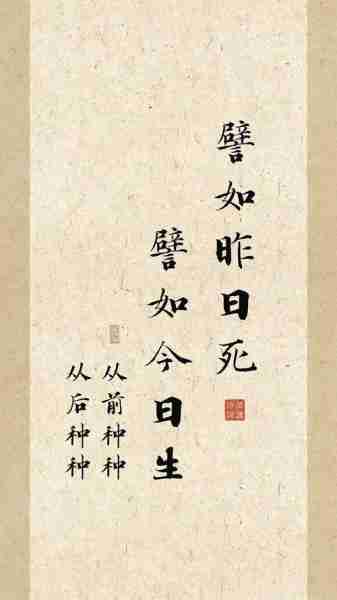 譬如昨日死
譬如今日生
从前种种
从后种种